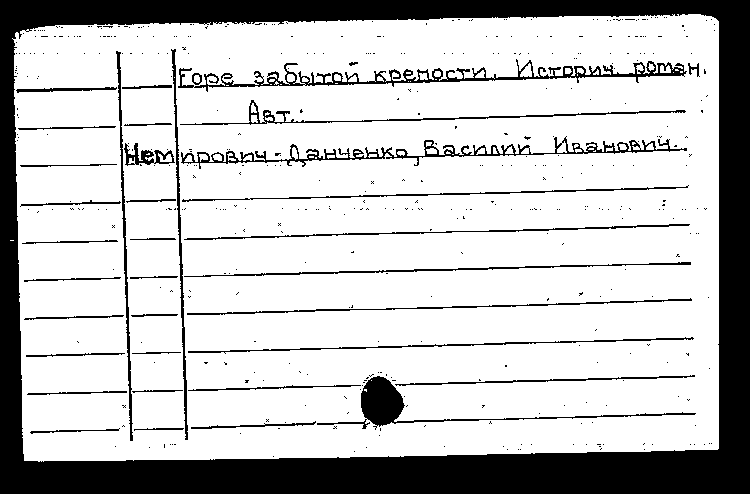 Горе забытой крепости. Историч. роман.
Авт.:
Немирович-Данченко, Василий Иванович.